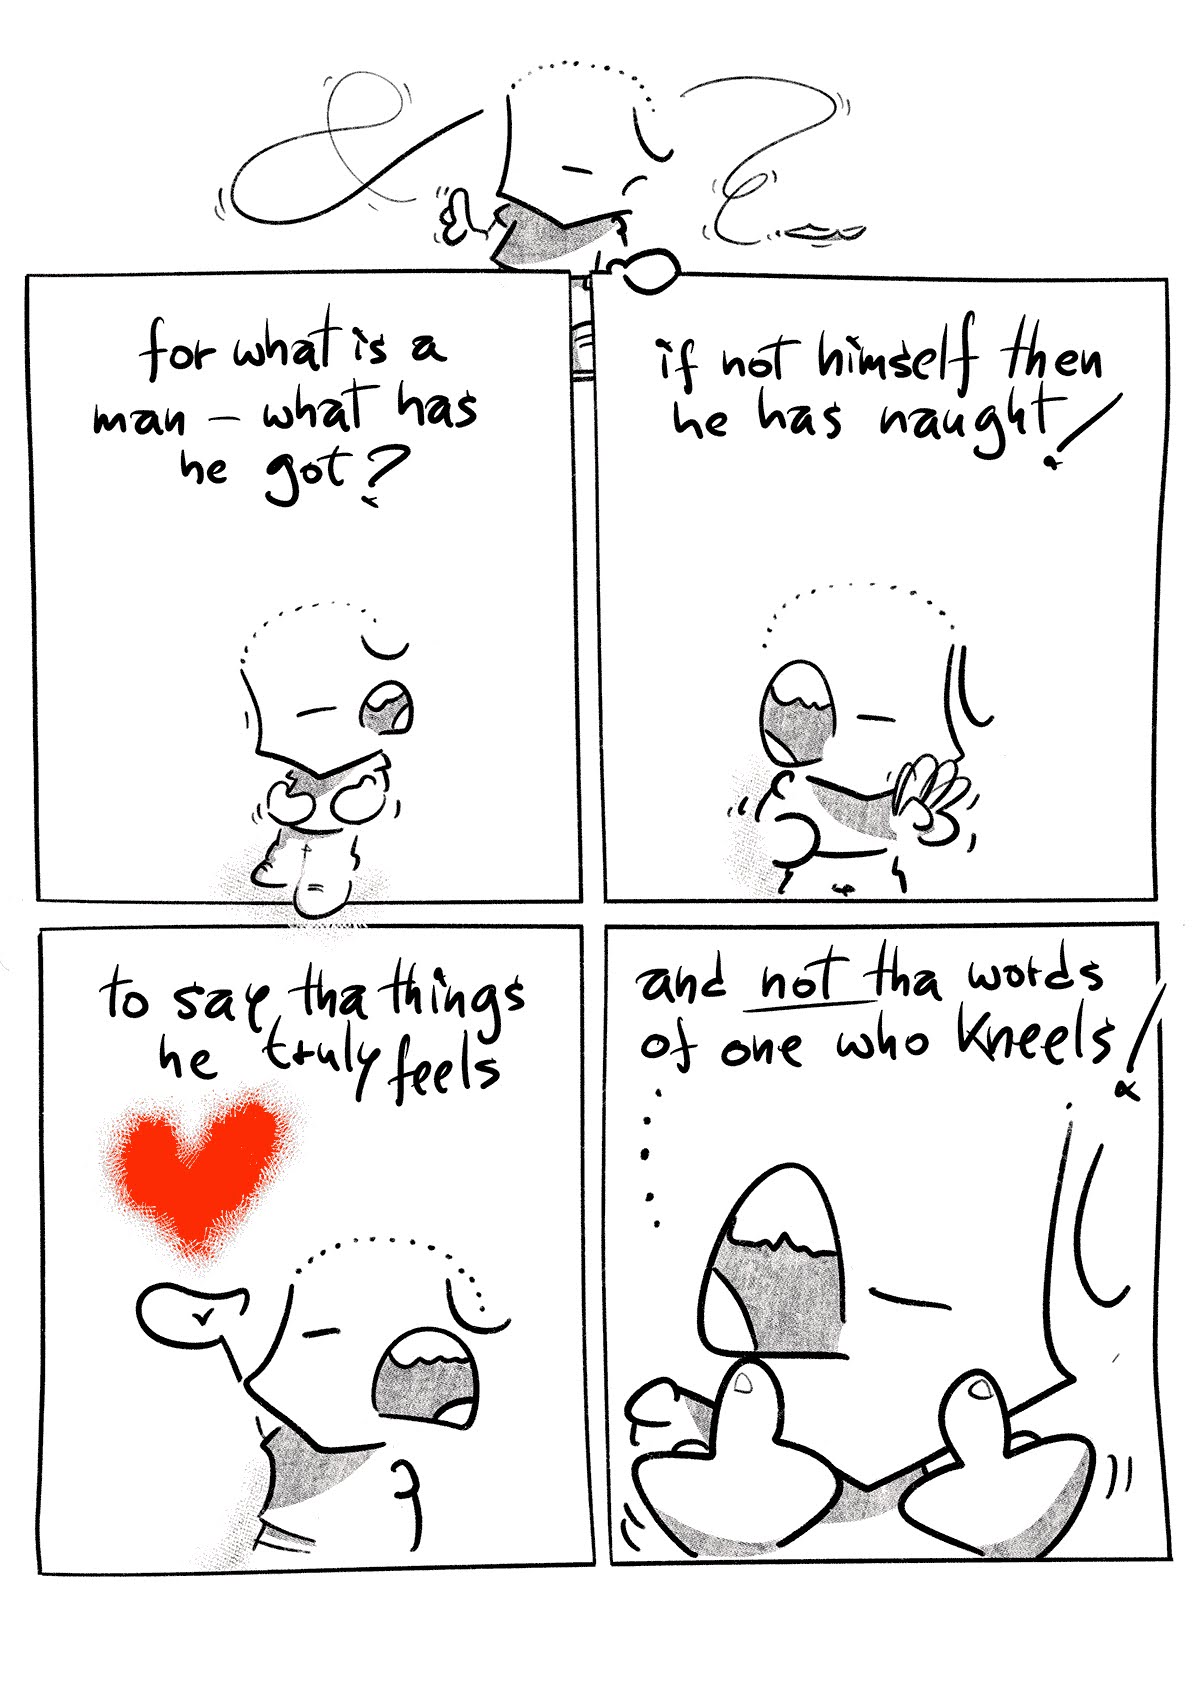 for what is a
man – what has
he got?
if not himself then
he has naught!
to say tha things
he truly feels
and not tha words
of one who kneels!